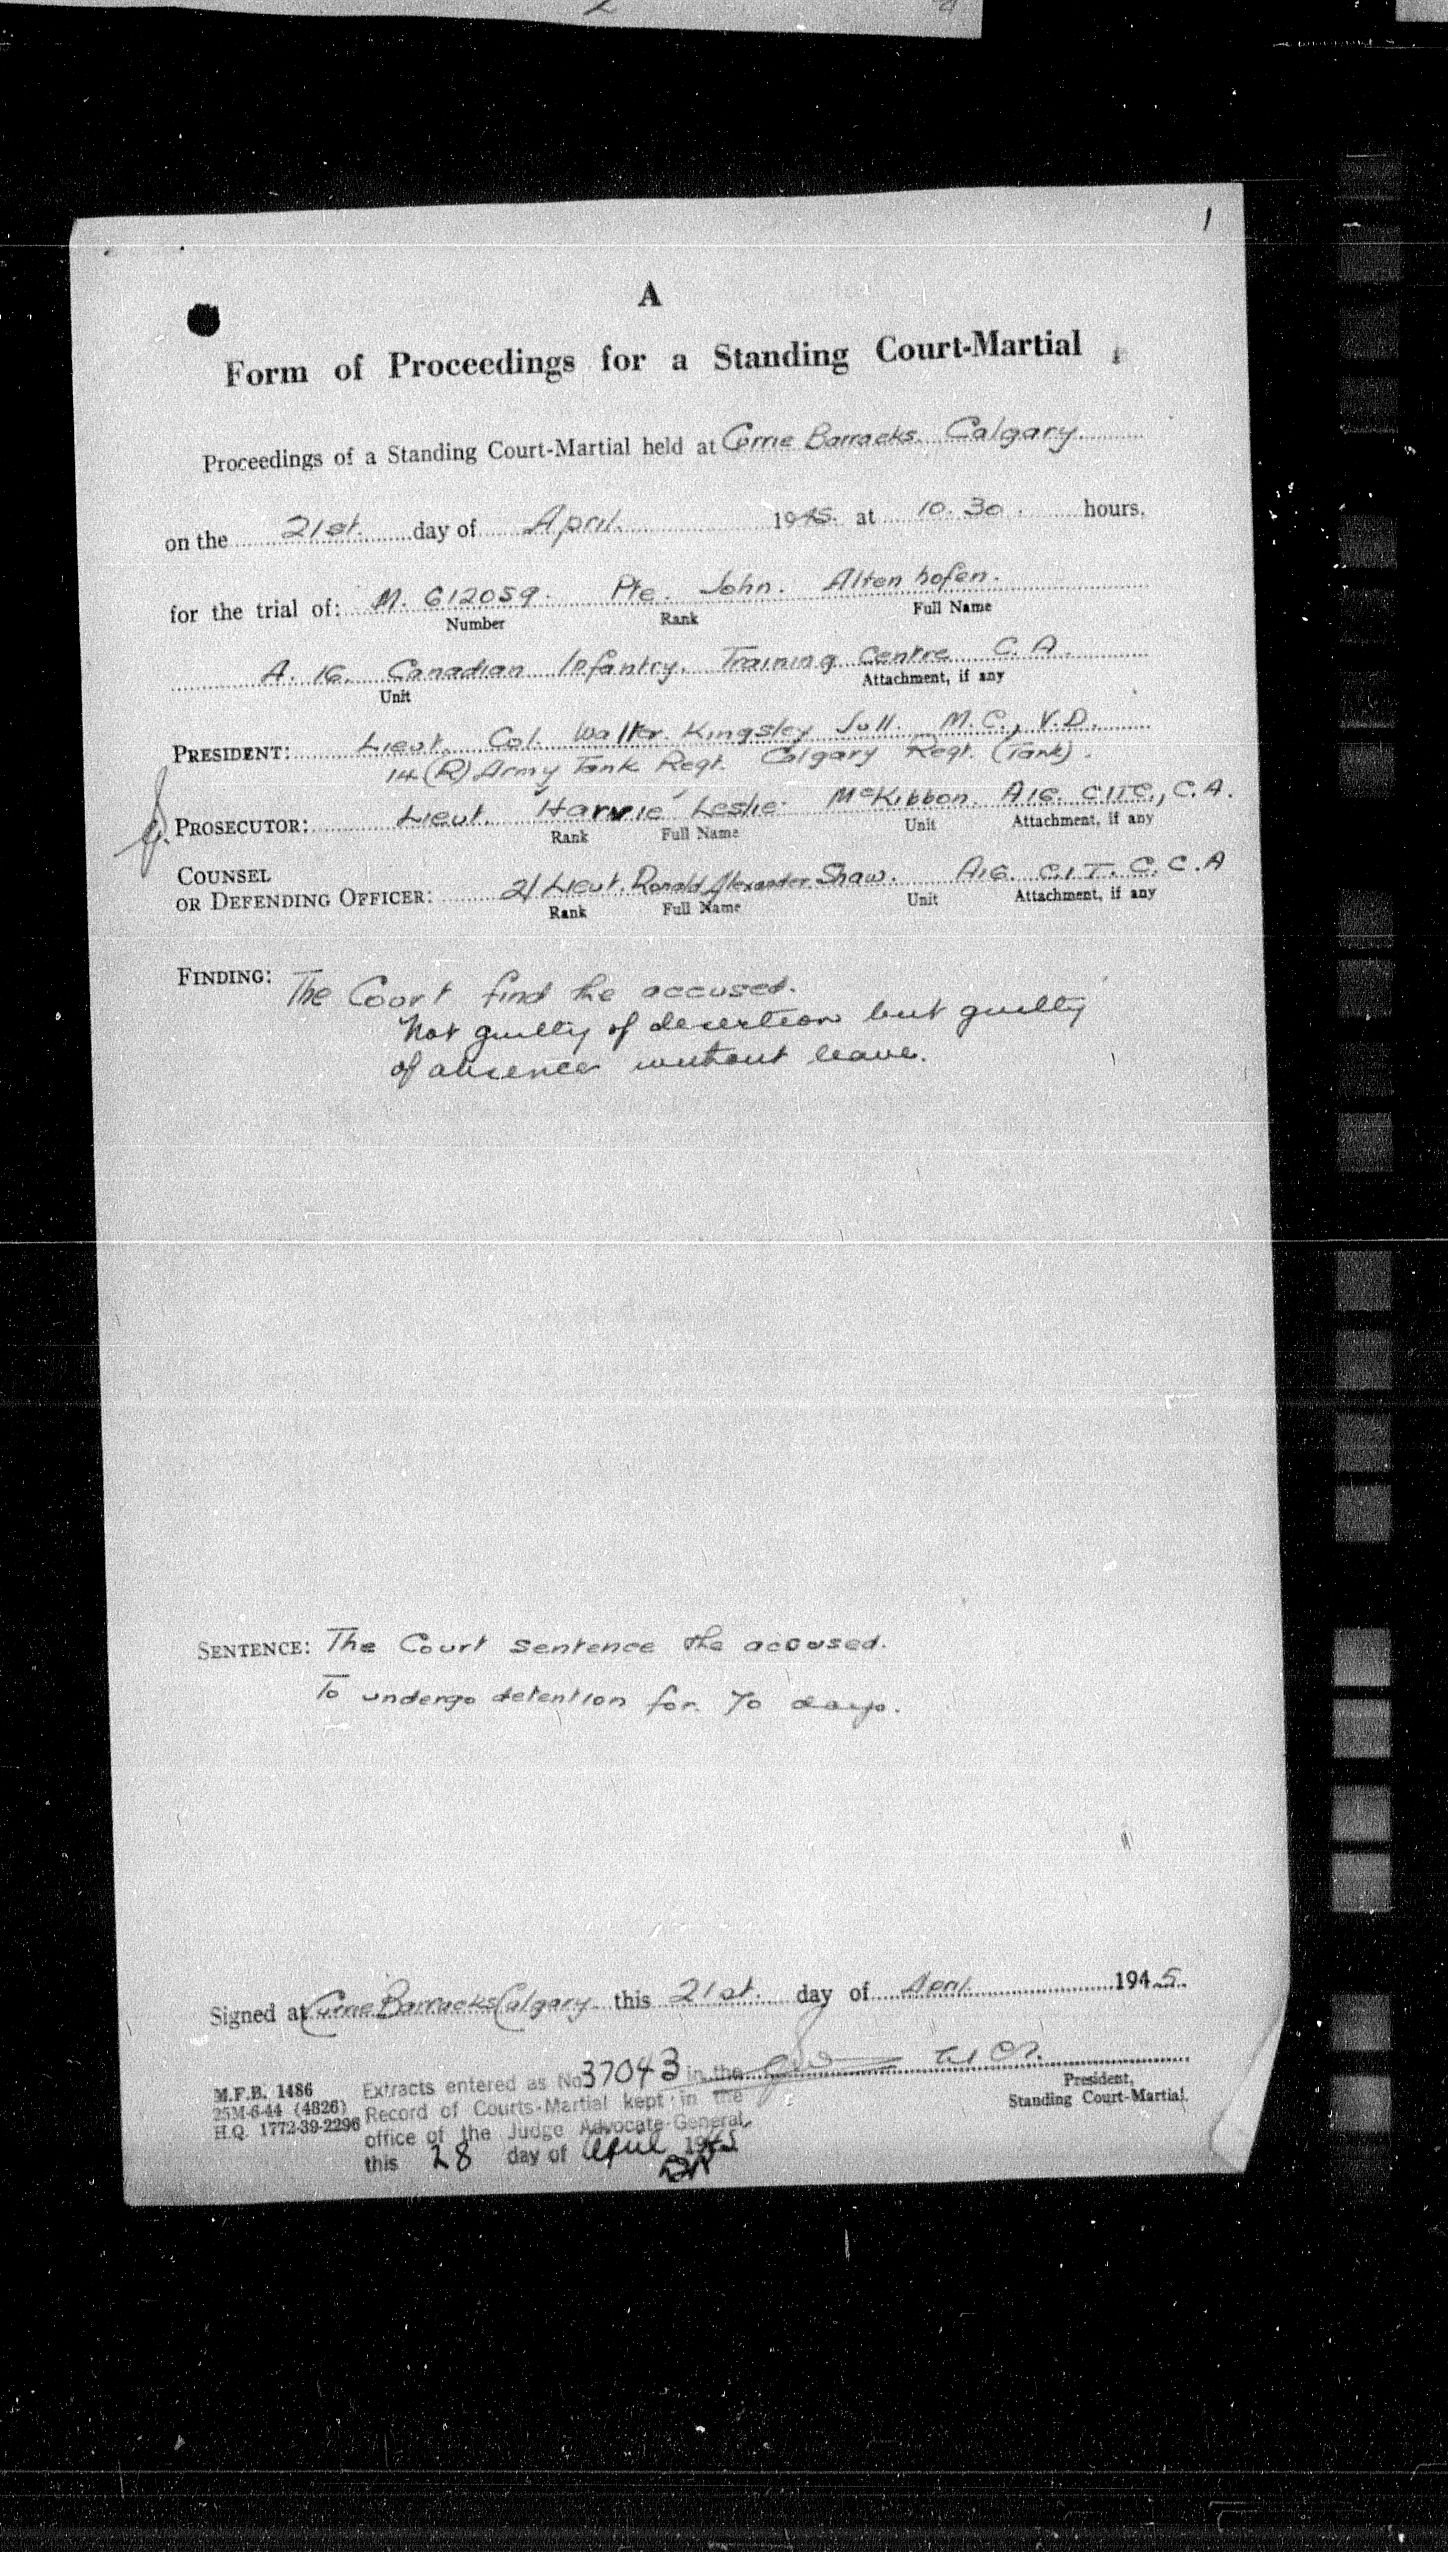 1
A
Form of Proceedings for a Standing Court-Martial
Proceedings of a Standing Court-Martial held at Currie Barracks. Calgary
on the 21st. day of April. 1945. at 10.30. hours.
for the trial of: M. 612059. Pte. John. Altenhofen.
Number Rank Full Name
A. 16. Canadian Infantry. Training Centre C. A.
Unit Attachment, if any
PRESIDENT: Lieut. Col. Walter Kingsley Jull. M.C., V.D.
14 (R) Army Tank Regt. Calgary Regt. (Tank).
PROSECUTOR: Lieut. "Harvie" Leslie McKibbon. A16. C.I.T.C., C.A.
Rank Full Name Unit Attachment, if any
COUNSEL
OR DEFENDING OFFICER: 2/Lieut. Ronald Alexander Shaw. A16. C.I.T.C. C.A
Rank Full Name Unit Attachment, if any
FINDING: The Court find the accused.
Not guilty of desertion but guilty
of absence without leave.
SENTENCE: The Court sentence the accused.
To undergo detention for 70 days.
Signed at Currie Barracks Calgary this 21st. day of April. 1945.
Extracts entered as No 37043 in the
Record of Courts-Martial kept in the
office of the Judge Advocate-General,
this 28 day of April 1945
M.F.B. 1486
25M-6-44 (4826)
H.Q. 1772-39-2296
President,
Standing Court-Martial.